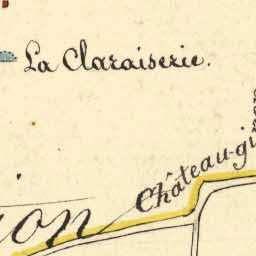 La Claraiserie.
Château-giron
ion